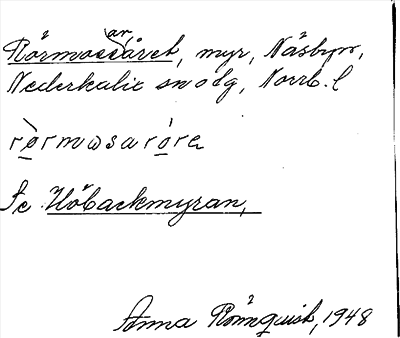 Rörmossaråret, myr, Näsbyn,
Nederkalix sn o dg, Norrb. l
rørmωsarøre
Se Höbackmyran,
Anna Rönnquist, 1948